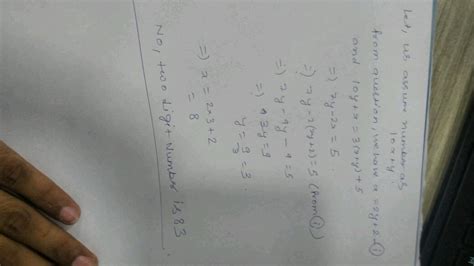 Let, us assume number as
10x+y.
from question, we have x = 2y+2 -①
and 10y+x = 3(x+y)+5
=) 7y-2x = 5.
=) 7y-2(2y+2)=5 (from ①)
=) 7y-4y-4=5
=) 3y=9
y=9/3=3.
=) x = 2×3+2
= 8
No, two digit number is 83